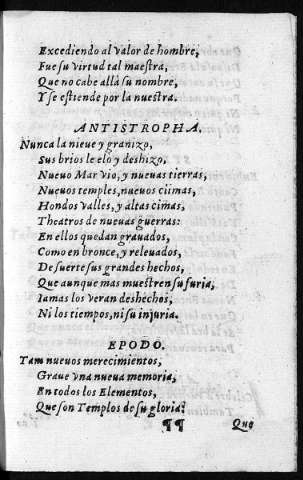 Excediendo al valor de hombre,
Fue su virtud tal maestra,
Que no cabe allâ su nombre,
Y se estiende por la nuestra.
ANTISTROPHA.
Nunca la nieue y granizo,
Sus brios le elo y deshizo,
Nueuo Mar vio, y nueuas tierras,
Nueuos temples, nueuos climas,
Hondos valles, y altas cimas,
Theatros de nueuas guerras:
En ellos quedan grauados,
Como en bronce, y releuados,
De suerte sus grandes hechos,
Que aunque mas muestren su furia,
Iamas los veran deshechos,
Ni los tiempos, ni su injuria.
EPODO.
Tam nueuos merecimientos,
Graue vna nueua memoria,
En todos los Elementos,
Que son Templos de su gloria:
¶¶ Que